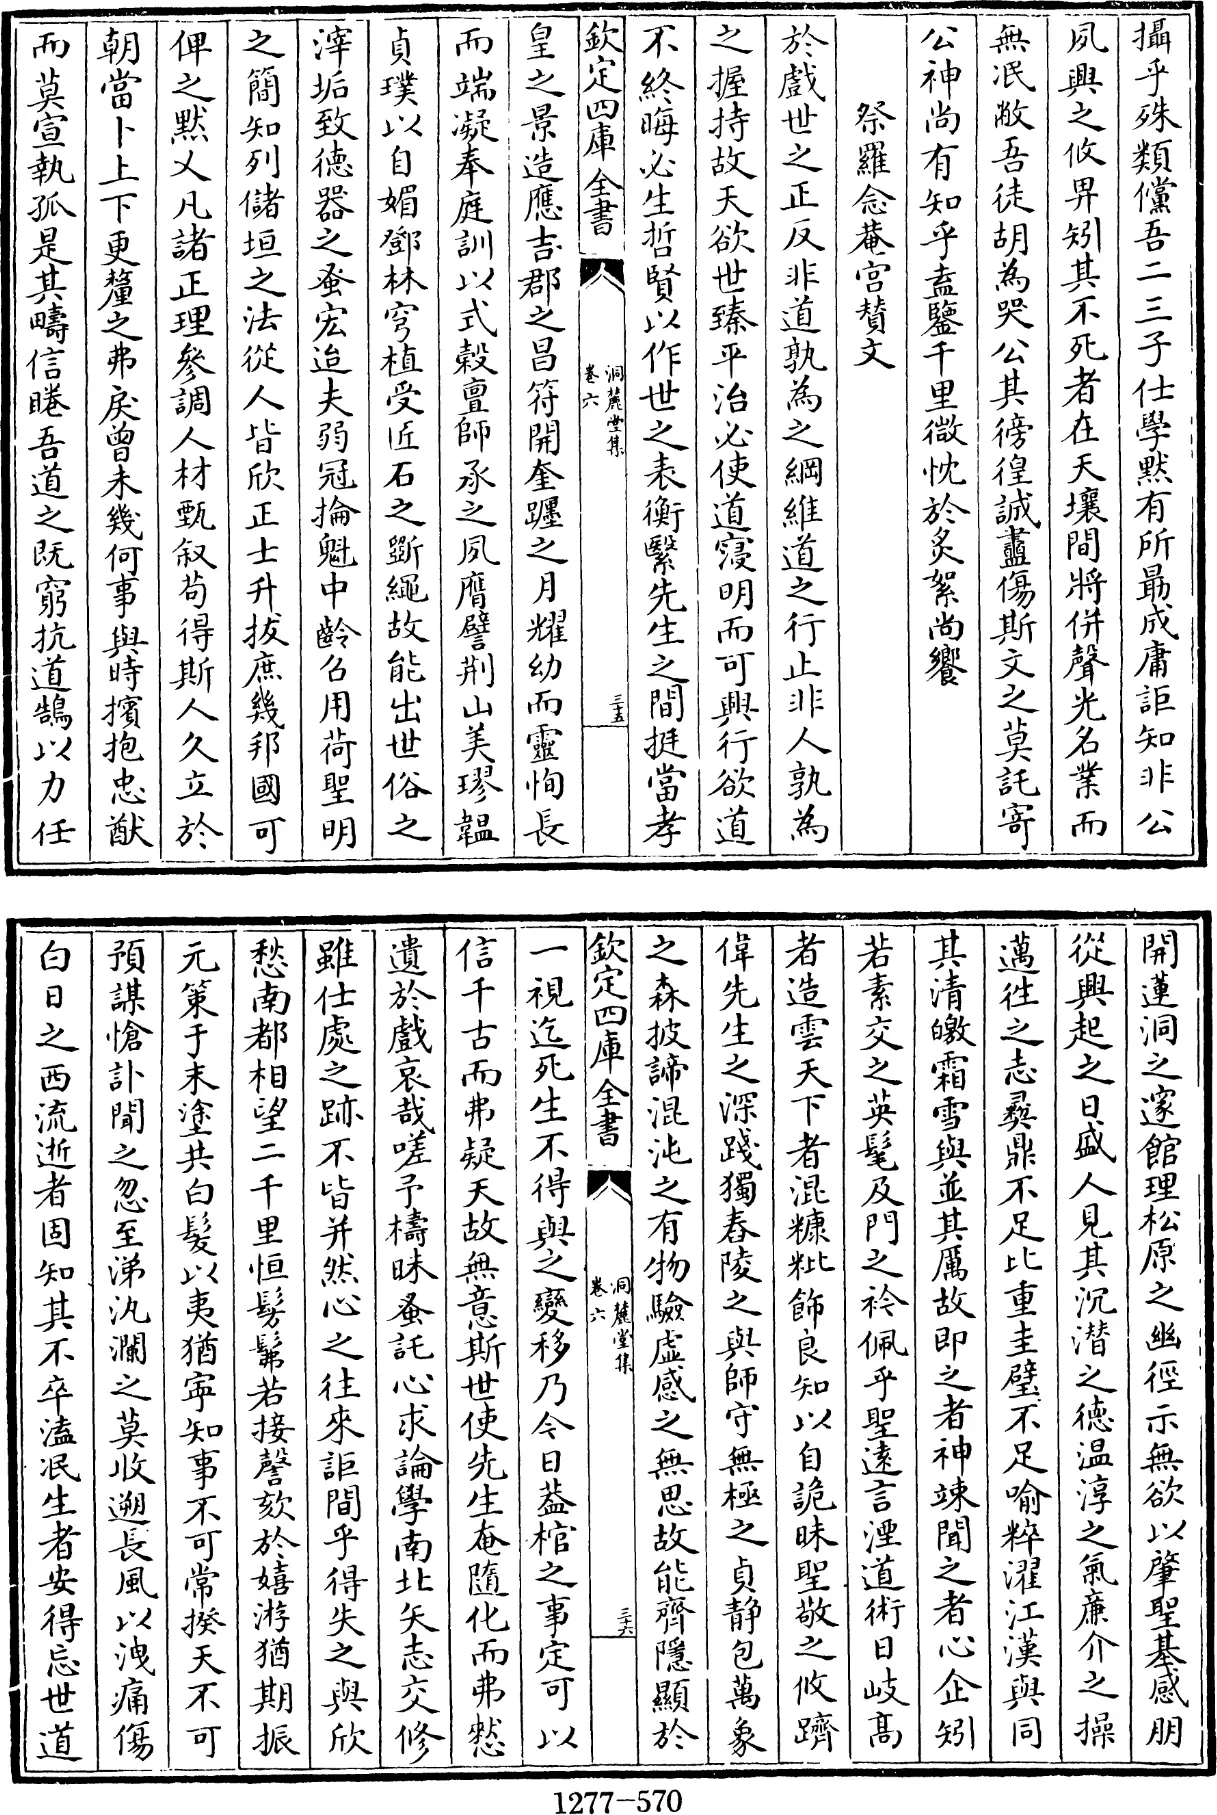 攝乎殊類儻吾二三子仕學默有所勗成庸詎知非公
夙興之攸畀矧其不死者在天壤間將併聲光名業而
無泯敝吾徒胡為哭公其徬徨誠盡傷斯文之莫託寄
公神尚有知乎盍鑒千里微忱於炙絮尚饗
祭羅念菴宫贊文
於戲世之正反非道孰為之綱維道之行止非人孰為
之握持故天欲世臻平治必使道寖明而可興行欲道
不終晦必生哲賢以作世之表衡繄先生之間挺當孝
欽定四庫全書
洞麓堂集
卷六
三十五
皇之景造應吉郡之昌符開奎躔之月耀幼而靈恂長
而端凝奉庭訓以式穀亶師承之夙膺譬荆山美璆韞
貞璞以自媚鄧林穹植受匠石之斵繩故能出世俗之
滓垢致德器之蚤宏迨夫弱冠掄魁中齡召用荷聖明
之簡知列儲垣之法從人皆欣正士升拔庶幾邦國可
俾之黙乂凡諸正理參調人材甄叙苟得斯人久立於
朝當卜上下更釐之弗戾曾未幾何事與時擯抱忠猷
而莫宣執孤是其疇信睠吾道之既窮抗道鵠以力任
開蓮洞之邃館理松原之幽徑示無欲以肇聖基感朋
從興起之日盛人見其沉潜之德温淳之氣亷介之操
邁徃之志彛鼎不足比重圭璧不足喻粹濯江漢與同
其清皦霜雪與並其厲故即之者神竦聞之者心企矧
若素交之英髦及門之衿佩乎聖逺言湮道術日岐髙
者造雲天下者混糠粃飾良知以自詭昧聖敬之攸躋
偉先生之深踐獨舂陵之與師守無極之貞静包萬象
之森披諦混沌之有物驗虚感之無思故能齊隱顯於
欽定四庫全書
洞麓堂集
卷六
三十六
一視迄死生不得與之變移乃今日葢棺之事定可以
信千古而弗疑天故無意斯世使先生奄隨化而弗憖
遺於戲哀哉嗟予檮昧蚤託心求論學南北矢志交修
雖仕處之跡不皆并然心之往來詎間乎得失之與欣
愁南都相望二千里恒髣髴若接謦欬於嬉游猶期振
元策于末塗共白髪以夷猶寜知事不可常揆天不可
預謀愴訃聞之忽至涕汍瀾之莫收遡長風以洩痛傷
白日之西流逝者固知其不卒溘泯生者安得忘世道
1277-570